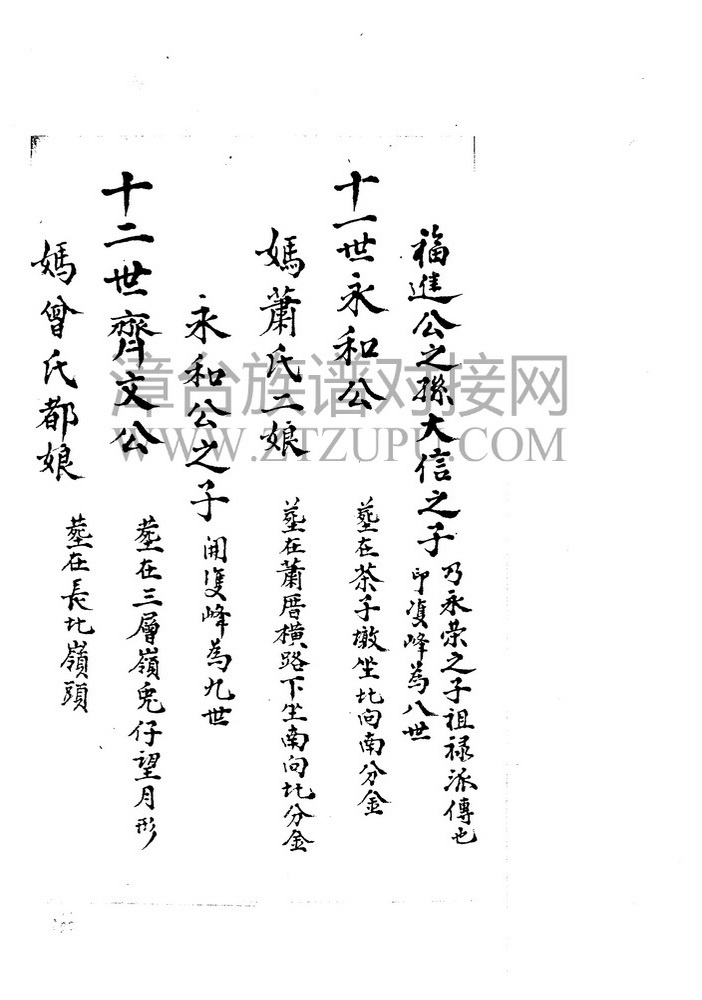 福進公之孫大信之子
乃永荣之子祖禄派傳也
印雙峰為八世
十一世永和公
塟在茶子墩坐北向南分金
媽蕭氏二娘
塟在蕭厝横路下坐南向北分金
永和公之子
開雙峰為九世
十二世齊文公
塟在三層嶺兎仔望月形
媽曾氏都娘
塟在長北嶺頭
漳台族谱对接网
WWW.ZTZUPU.COM